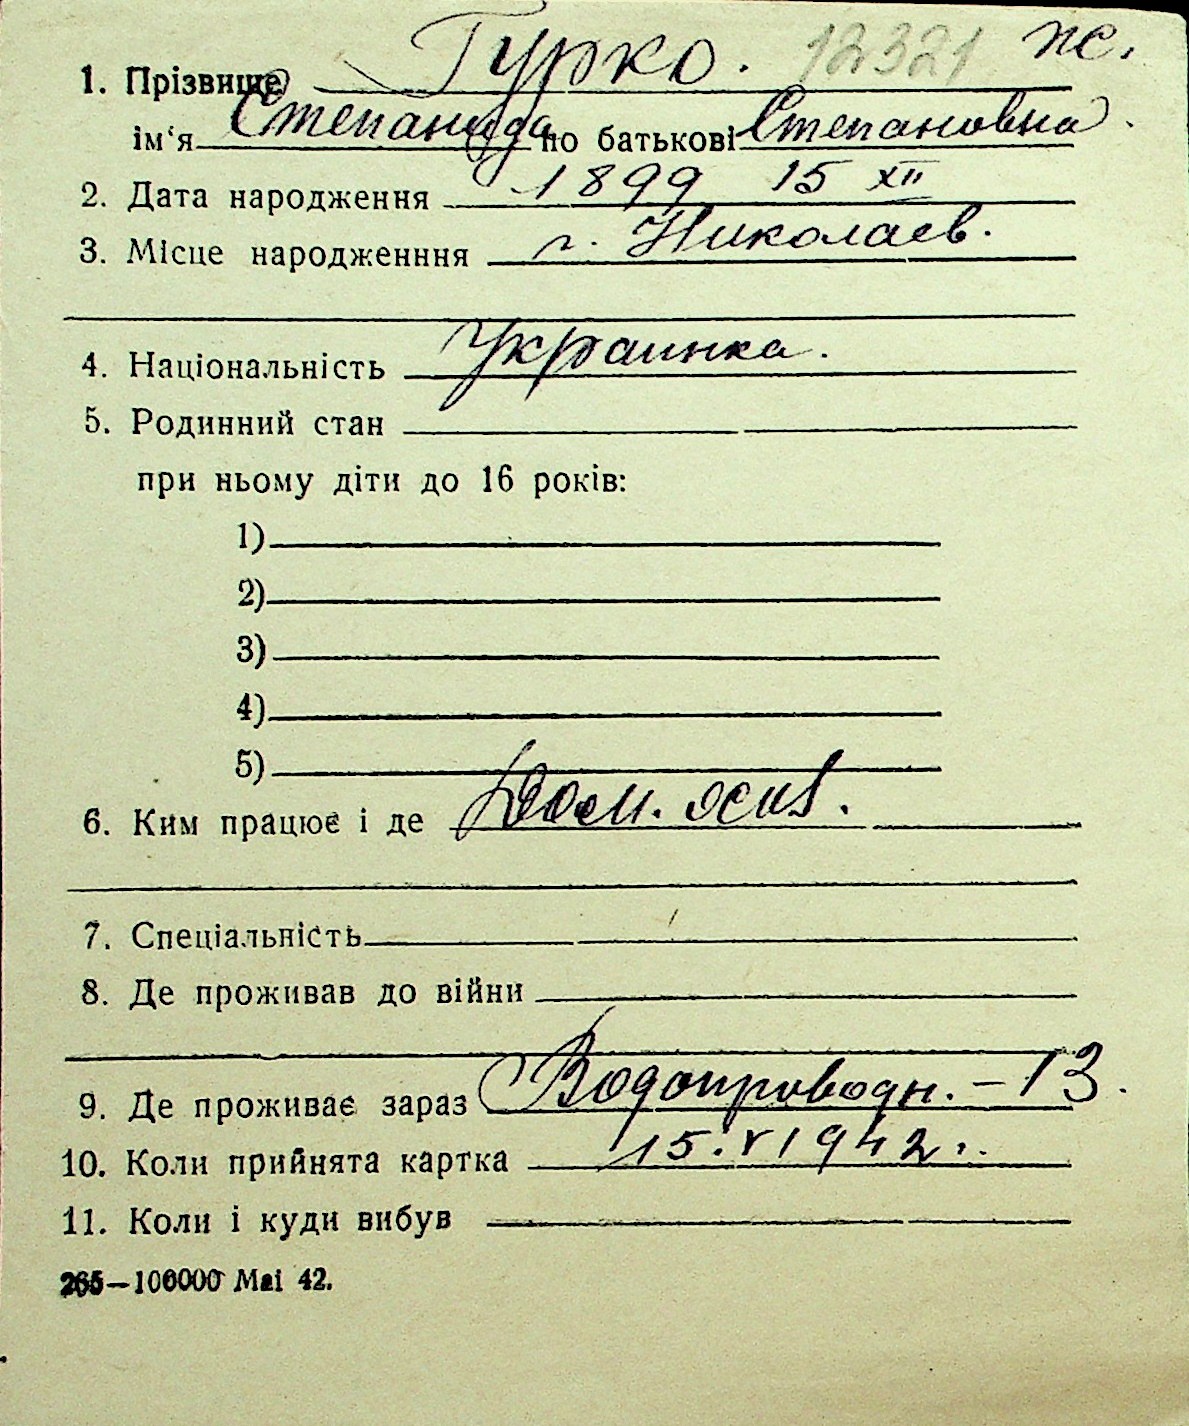 1. Прізвище Гурко. 12321 ж.
ім‘я Степанида по батькові Степановна.
2. Дата народження 1899 15 XII
3. Місце народженння г. Николаев.
4. Національність Украинка.
5. Родинний стан
при ньому діти до 16 років:
1)
2)
3)
4)
5)
6. Ким працює і де Дом. хоз.
7. Спеціальність
8. Де проживав до війни
9. Де проживає зараз Водопроводн. – 13.
10. Коли прийнята картка 15. V 1942.
11. Коли і куди вибув
265—100000 Mai 42.